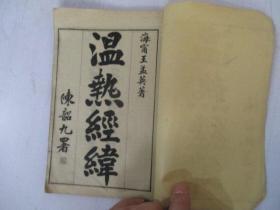 海甯王孟英著
溫熱經緯
陳韶九署